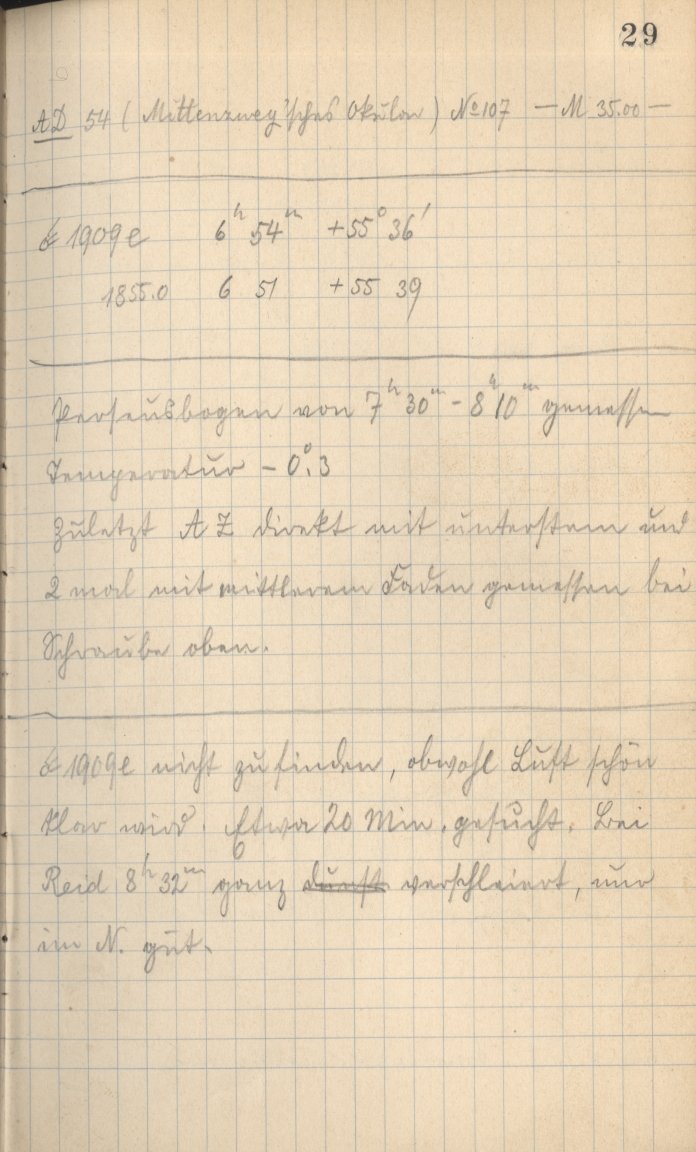 29
AD 54 (Mittenzwey'sches Okular) No 107 — M 35.00 —
☄ 1909e 6ʰ 54ᵐ +55° 36'
1855.0 6 51 +55 39
Perseusbogen von 7ʰ 30ᵐ - 8ʰ 10ᵐ gemessen
Temperatur - 0°.3
Zuletzt AZ direkt mit unterstem und
2 mal mit mittlerem Faden gemessen bei
Schraube oben.
☄ 1909e nicht zu finden, obwohl Luft schön
klar wird. Etwa 20 Min. gesucht. Bei
Reid 8ʰ 32ᵐ ganz verschleiert, nur
im N. gut.